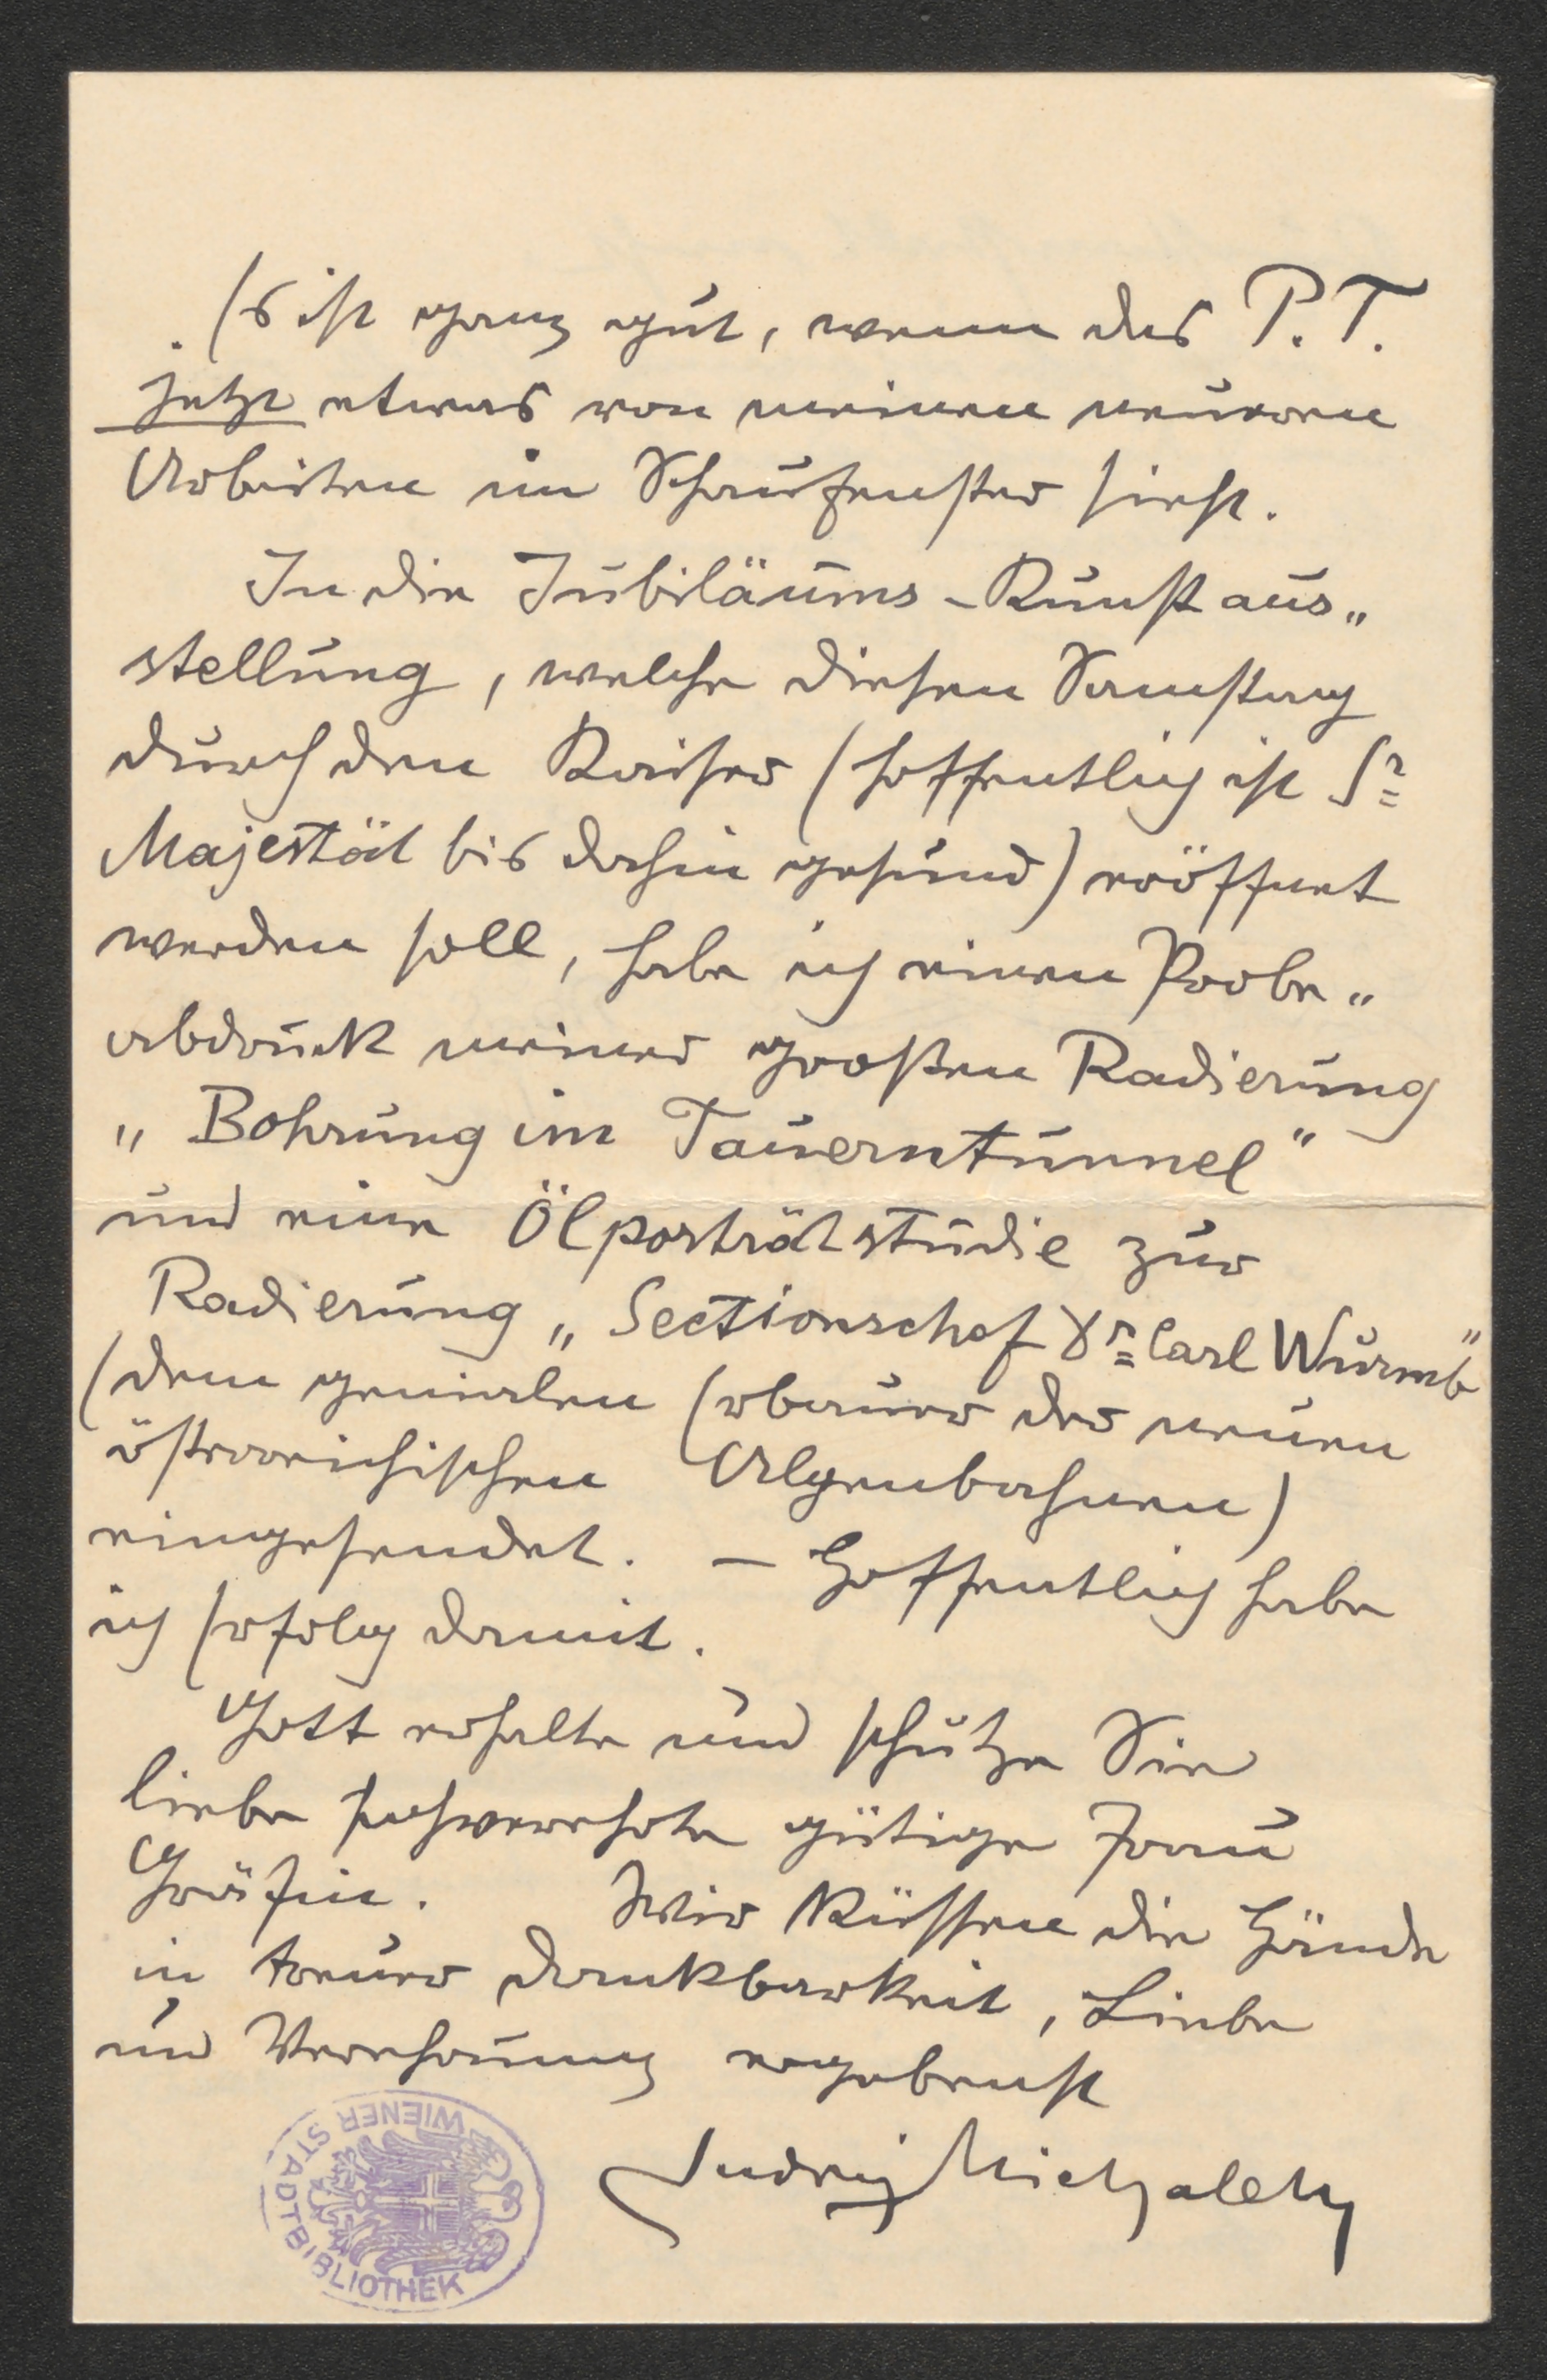 Es ist ganz gut, wenn das P. T.
jetzt etwas von meinen neueren
Arbeiten im Schaufenster sieht.
In die Jubiläums-Kunstaus„
stellung, welche diesen Samstag
durch den Kaiser (hoffentlich ist Sr
Majestät bis dahin gesund) eröffnet
werden soll, habe ich einen Probe„
abdruck meiner großen Radierung
„Bohrung im Tauerntunnel“
und eine Ölporträtstudie zur
Radierung „Sectionschef Dr. Carl Wurmb“
(dem genialen Erbauer der neuen
österreichischen Alpenbahnen)
eingesendet. – Hoffentlich habe
ich Erfolg damit.
Gott erhalte und schütze Sie
liebe hochverehrte gütige Frau
Gräfin. Wir küssen die Hände
in treuer Dankbarkeit, Liebe
und Verehrung ergebenst
Ludwig Michalek
WIENER STADTBIBLIOTHEK